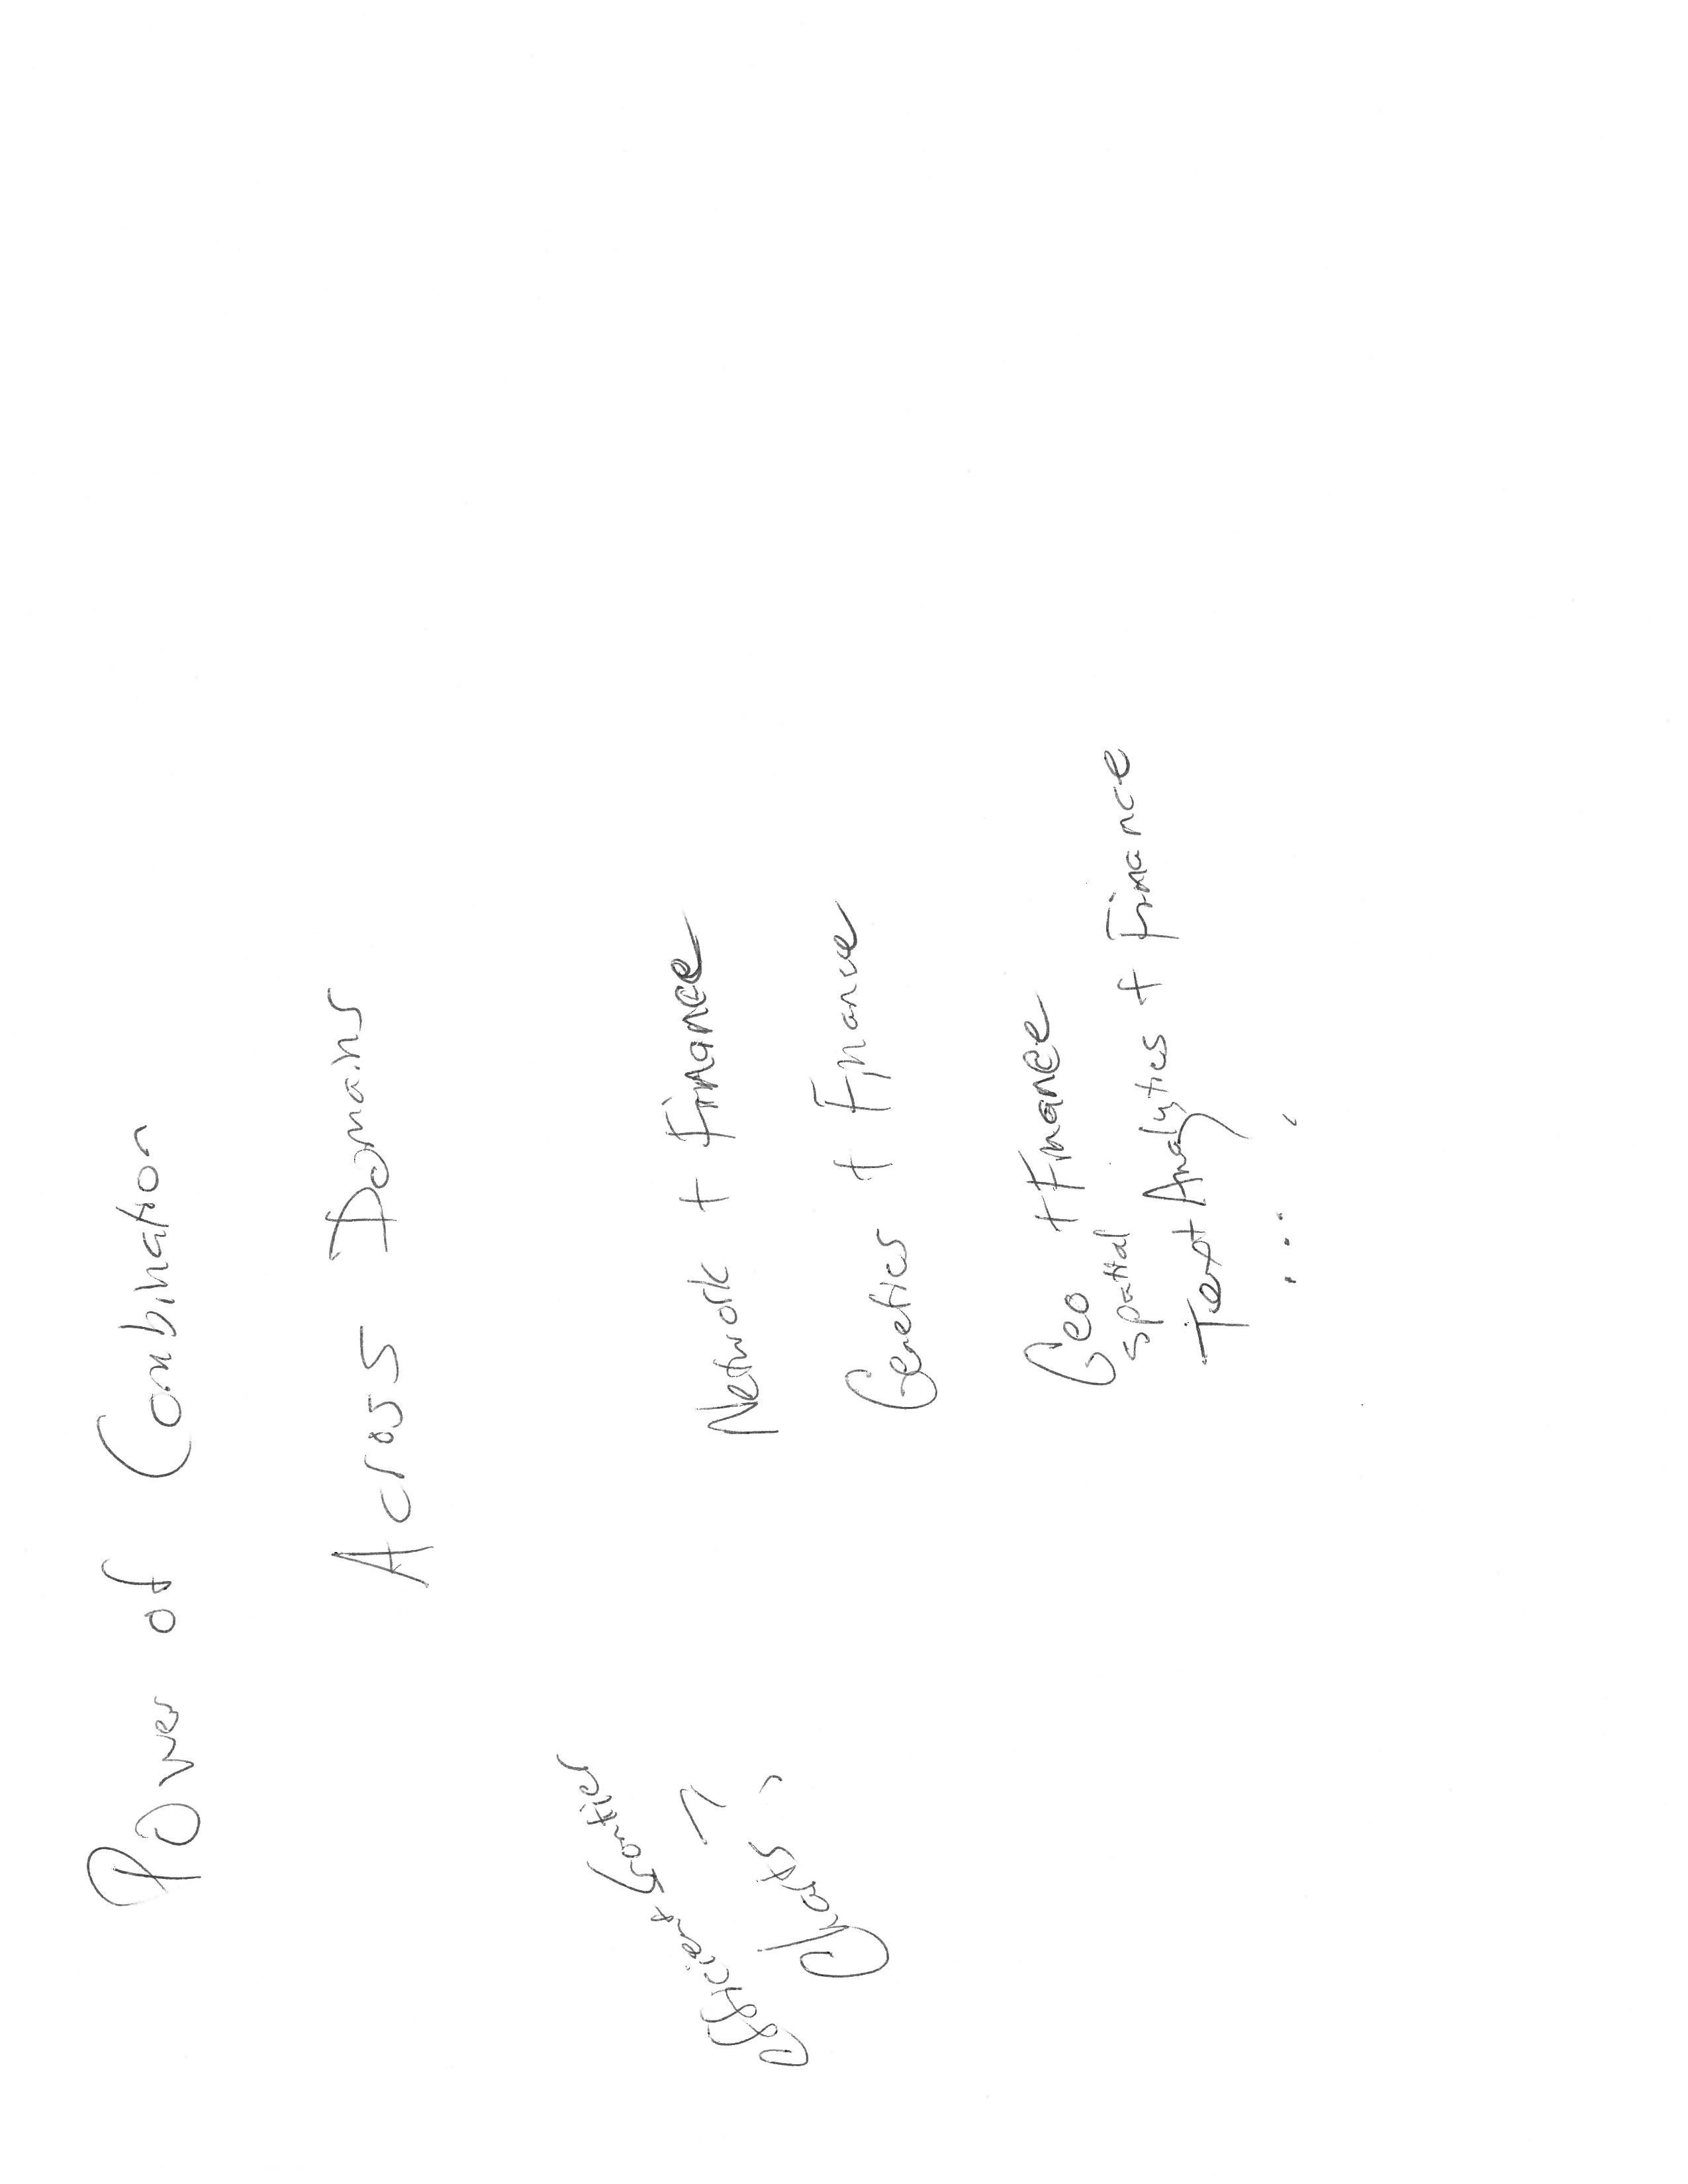 Power of Combination
Across Domains
efficient frontier
Charts ?
Network + Finance
Genetics + Finance
Geo + Finance
spatial
Text Analytics + Finance
...